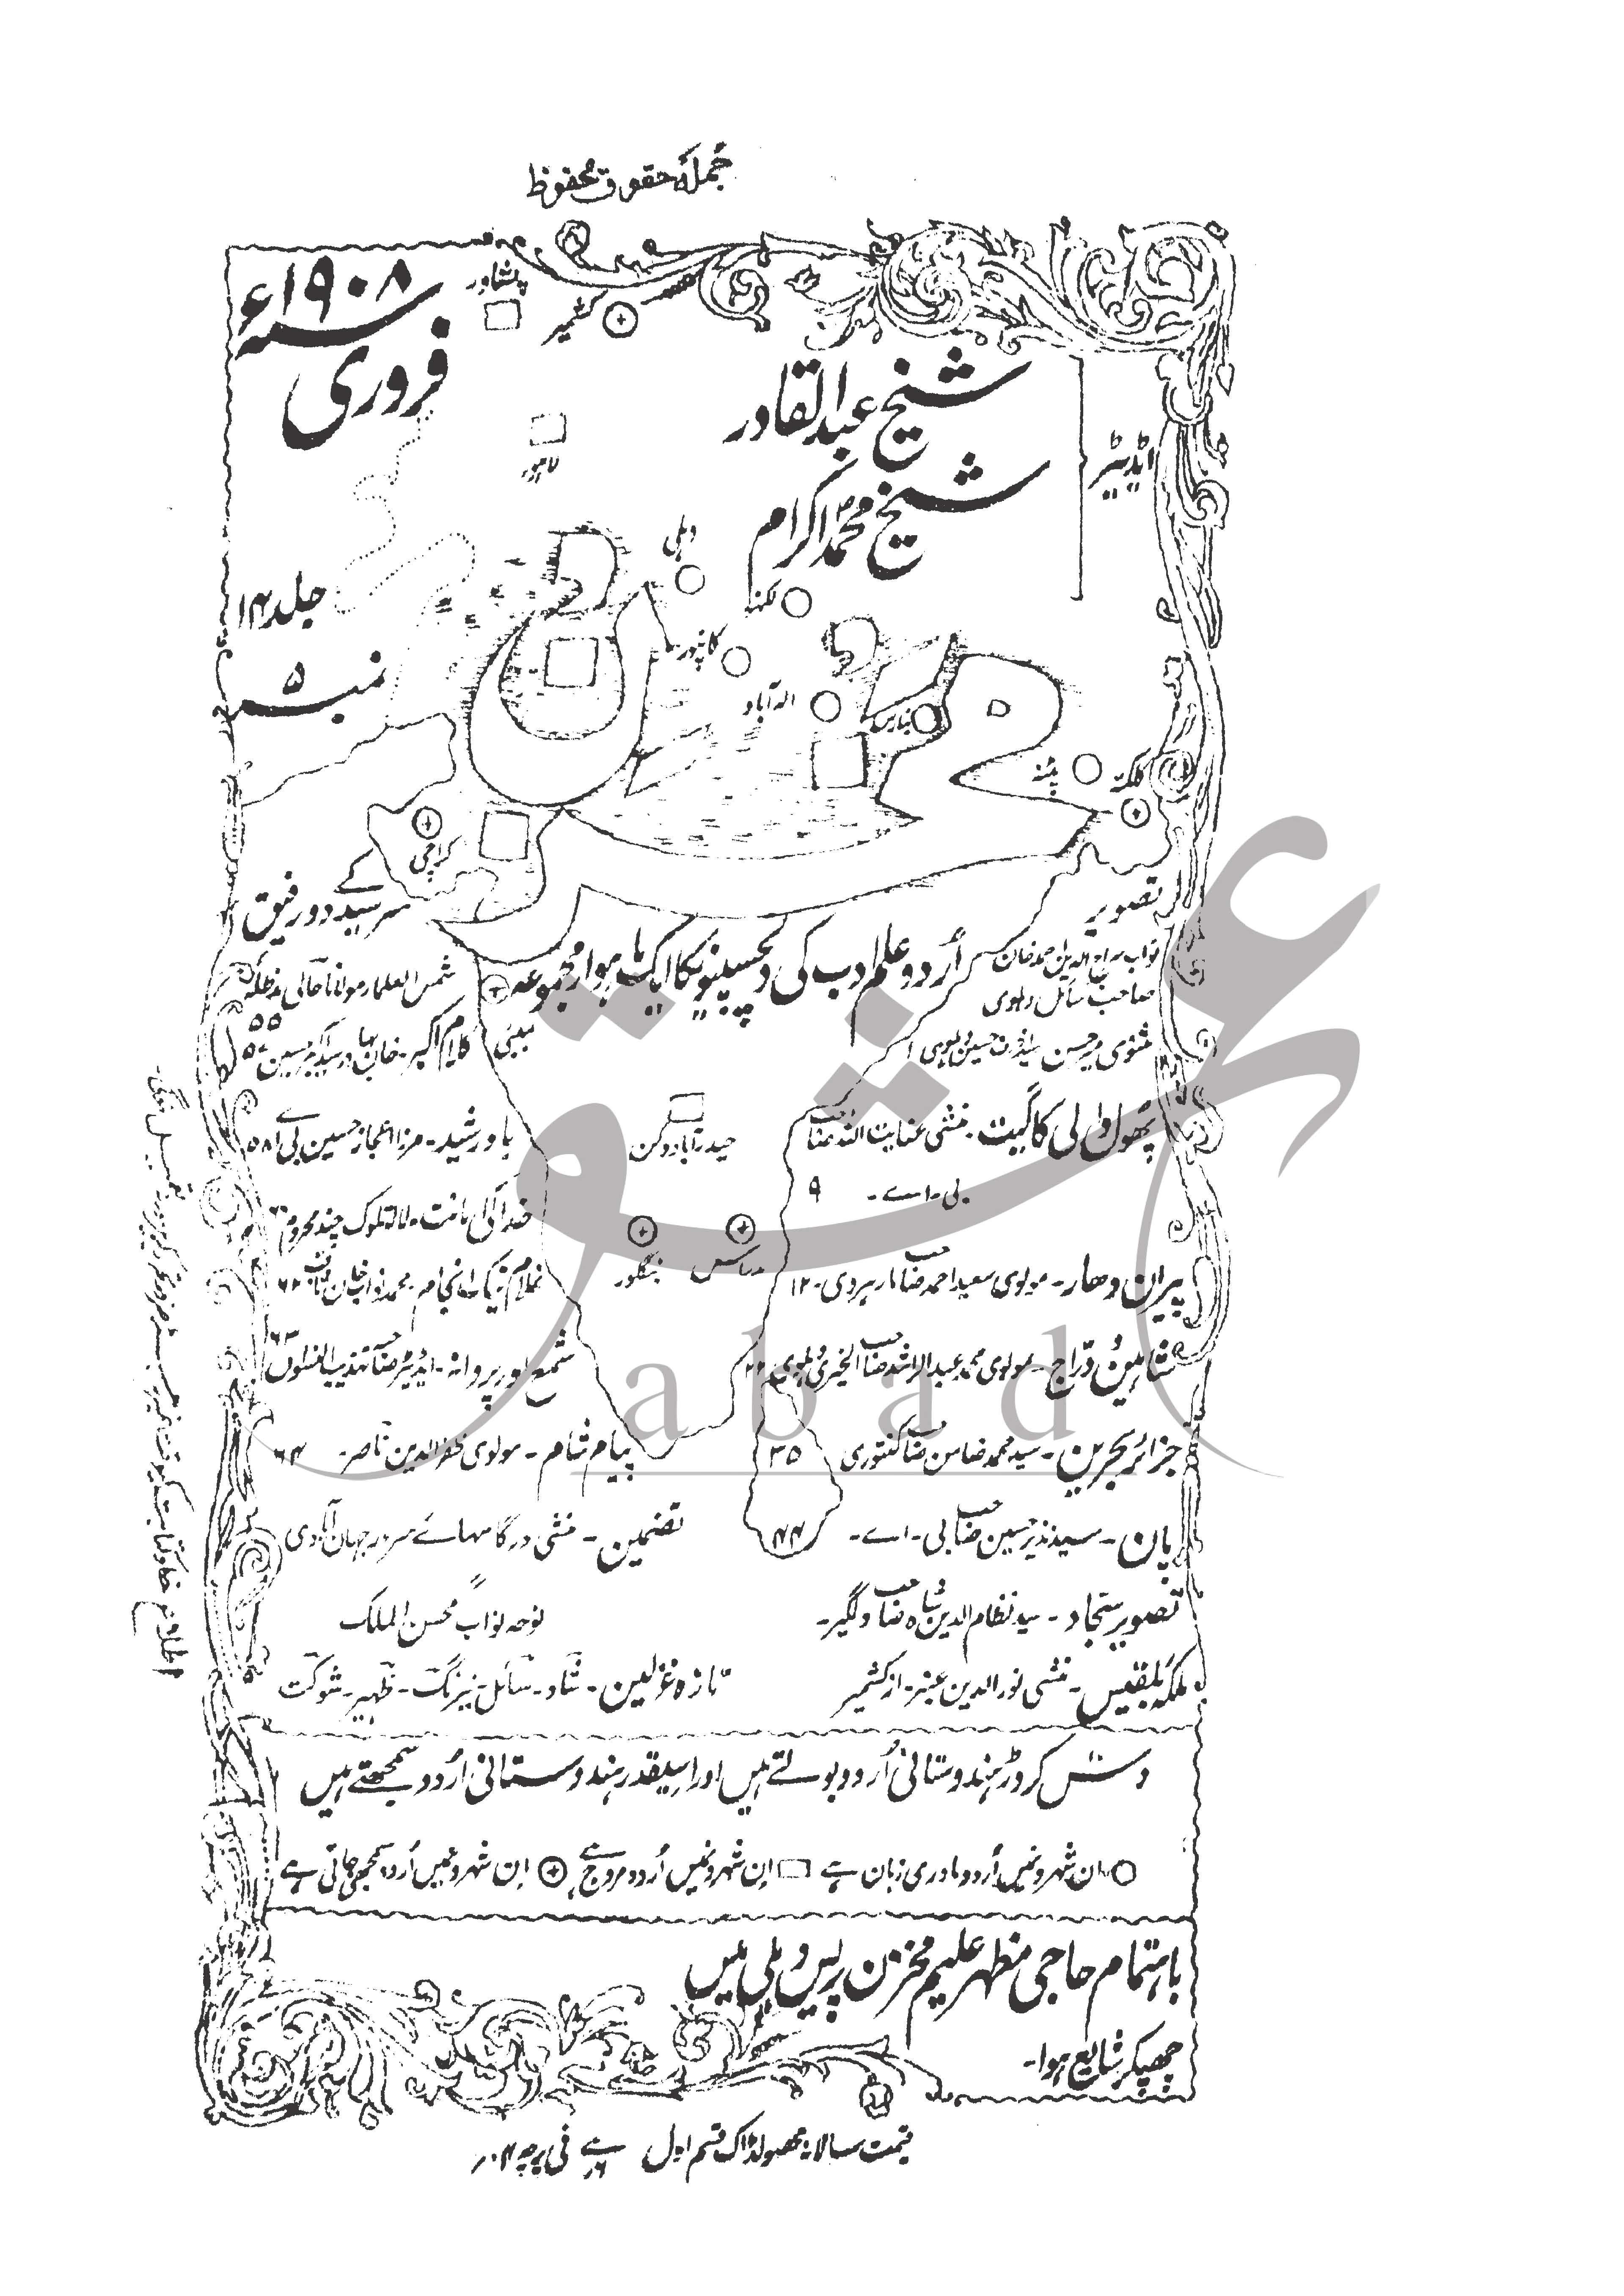 جملہ حقوق محفوظ
سنہ ۱۹۰۸ء
فروری
جلد ۱۴
نمبر ۵
ایڈیٹر
شیخ عبدالقادر
شیخ محمد اکرام
مخزن
پشاور
کشمیر
لاہور
دہلی
لکھنؤ
کانپور
الہ آباد
بنارس
پٹنہ
کلکتہ
کراچی
اُردو علم ادب کی دلچسپیونکا ایک ماہوار مجموعہ
بمبئی
حیدرآباد دکن
مدراس
بنگلور
تصویر
نواب سراج الدین احمد خان
صاحب سائل دہلوی
مثنوی میر حسن
پھول والی کا گیت۔ منشی عنایت اللہ صاحب
بی۔ اے۔ ۹
پیران دھار۔ مولوی سعید احمد صاحب مارہروی۔ ۱۲
شاہین و دُرّاج۔ مولوی محمد عبدالراشد صاحب الخیری دہلوی
جزائر بحرین۔ سید محمد ضامن صاحب کنتوری ۳۵
پان۔ سید نذیر حسین صاحب بی۔ اے۔ ۴۴
تصویر سجاد۔ سید نظام الدین شاہ صاحب دلگیر۔
ملکہ بلقیس۔ منشی نور الدین عنبر۔ از کشمیر
سرسید کے دو رفیق
شمس العلماء مولانا حالی مدظلہ ۵۵
کلام اکبر۔ خان بہادر سید اکبر حسین
مرزا اعجاز حسین بی اے ۵۸
خدا کی امانت۔ لالہ تلوک چند محروم
شمع اور پروانہ۔ ایڈیٹر صاحب تہذیب النسواں ۶۳
پیام شام۔ مولوی ظفر الدین ناصر۔ ۶۴
تضمین۔ منشی درگا سہائے سرور جہان آبادی
نوحہ نواب محسن الملک
تازہ غزلیں۔ شاد۔ سائل۔ نیرنگ۔ ظہیر۔ شوکت
دس کروڑ ہندوستانی اُردو بولتے ہیں اور اسیقدر ہندوستانی اُردو سمجھتے ہیں
ان شہرونمیں اُردو مادری زبان ہے ان شہرونمیں اُردو مروج ہے ان شہرونمیں اُردو سمجھی جاتی ہے
باہتمام حاجی مظہر علیم مخزن پریس دہلی میں
چھپکر شایع ہوا۔
قیمت سالانہ محصولڈاک قسم اول فی پرچہ
عشق
abad